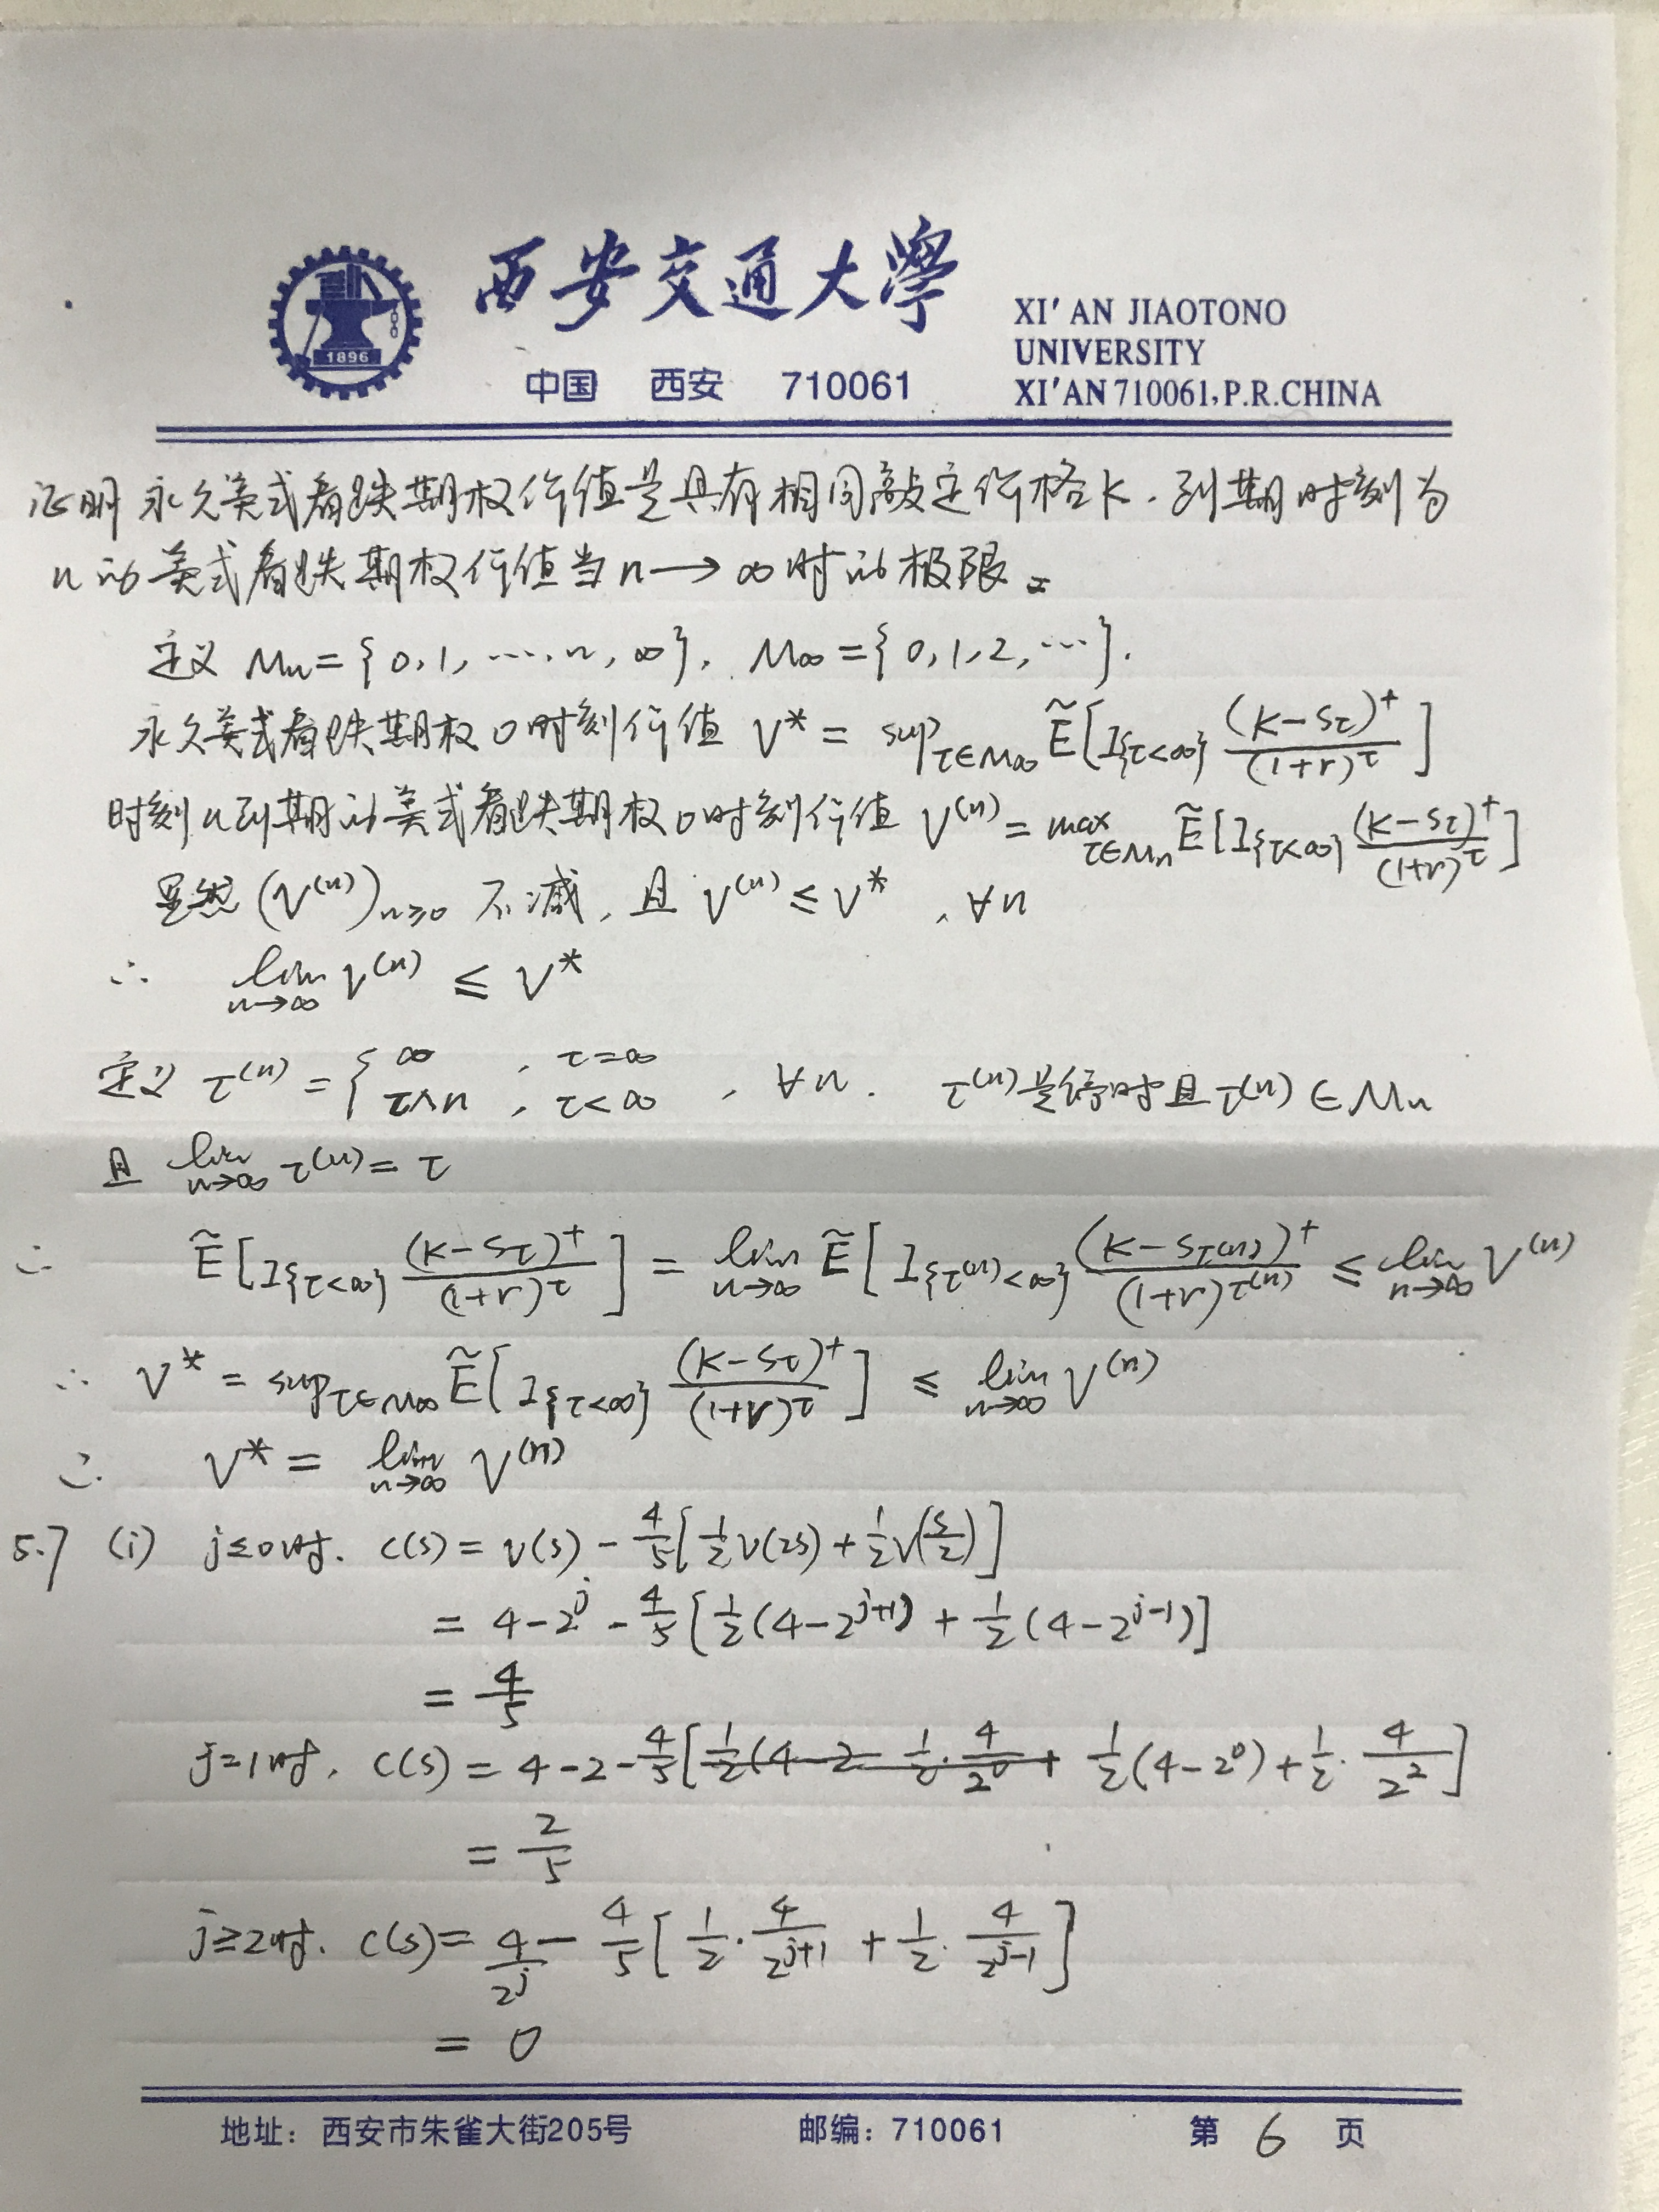 西安交通大學
中国 西安 710061
XI'AN JIAOTONO
UNIVERSITY
XI'AN 710061, P.R.CHINA
1896
证明 永久美式看跌期权价值是具有相同敲定价格K、到期时刻为
n的美式看跌期权价值当n→∞时的极限。
定义 Mn={0,1,…,n,∞}, M∞={0,1,2,…}.
永久美式看跌期权0时刻价值 V* = sup_{τ∈M∞} Ẽ[I_{τ<∞} (K-Sτ)^+/(1+r)^τ]
时刻n到期的美式看跌期权0时刻价值 V^(n) = max_{τ∈Mn} Ẽ[I_{τ<∞} (K-Sτ)^+/(1+r)^τ]
显然 (V^(n))_{n≥0} 不减, 且 V^(n) ≤ V*, ∀n
∴ lim_{n→∞} V^(n) ≤ V*
定义 τ^(n) = { ∞ , τ=∞
τ∧n , τ<∞ , ∀n. τ^(n)是停时且τ^(n)∈Mn
且 lim_{n→∞} τ^(n) = τ
∴ Ẽ[I_{τ<∞} (K-Sτ)^+/(1+r)^τ] = lim_{n→∞} Ẽ[I_{τ^(n)<∞} (K-S_{τ^(n)})^+/(1+r)^{τ^(n)}] ≤ lim_{n→∞} V^(n)
∴ V* = sup_{τ∈M∞} Ẽ[I_{τ<∞} (K-Sτ)^+/(1+r)^τ] ≤ lim_{n→∞} V^(n)
∴ V* = lim_{n→∞} V^(n)
5.7 (i) j≤0时. C(s) = V(s) - 4/5[1/2 V(2s) + 1/2 V(s/2)]
= 4-2^j - 4/5[1/2(4-2^{j+1}) + 1/2(4-2^{j-1})]
= 4/5
j=1时, C(s) = 4-2-4/5[1/2(4-2^0) + 1/2·4/2^2]
= 2/5
j≥2时. C(s) = 4/2^j - 4/5[1/2·4/2^{j+1} + 1/2·4/2^{j-1}]
= 0
地址：西安市朱雀大街205号 邮编：710061 第 6 页